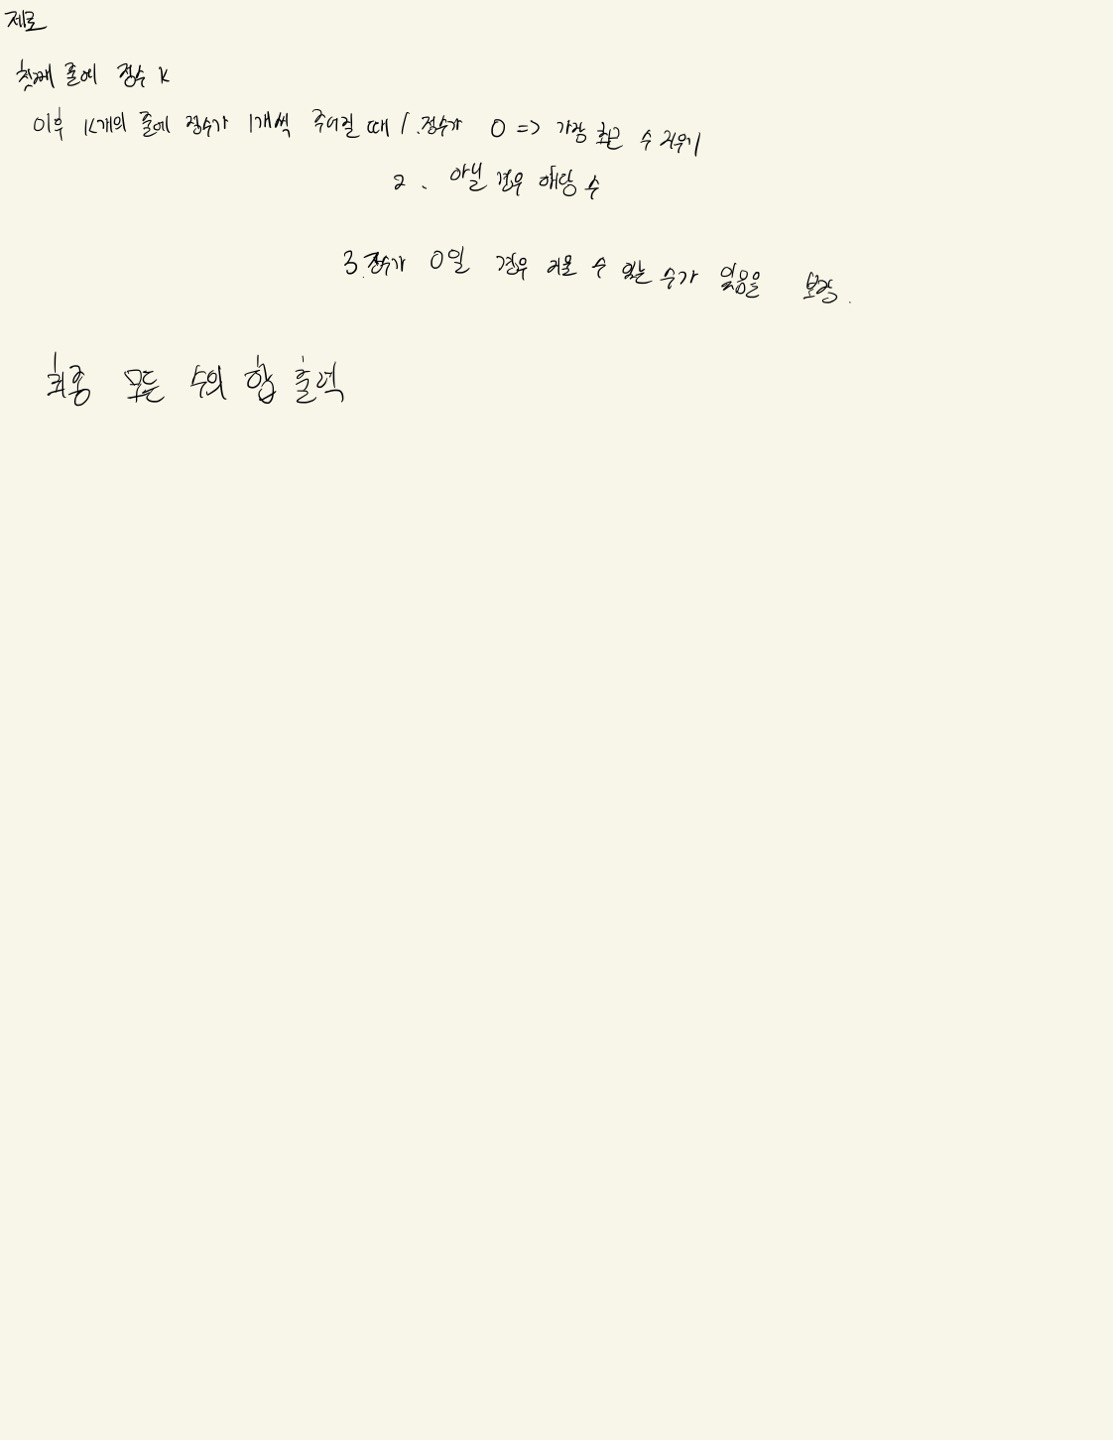 제로
첫째 줄에 정수 K
이후 K개의 줄에 정수가 1개씩 주어질 때 1. 정수가 0 => 가장 최근 수 지우기
2. 아닐 경우 해당 수
3. 정수가 0일 경우 지울 수 있는 수가 있음을 보장.
최종 모든 수의 합 출력